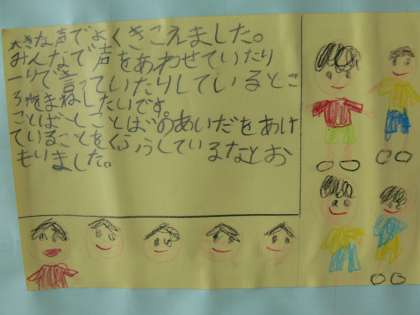 大きな声でよくきこえました。
みんなで声をあわせていたり
一りで言っていたりしているとこ
ろをまねしたいです。
ことばとことばのあいだをあけ
ていることをくふうしているなとお
もいました。